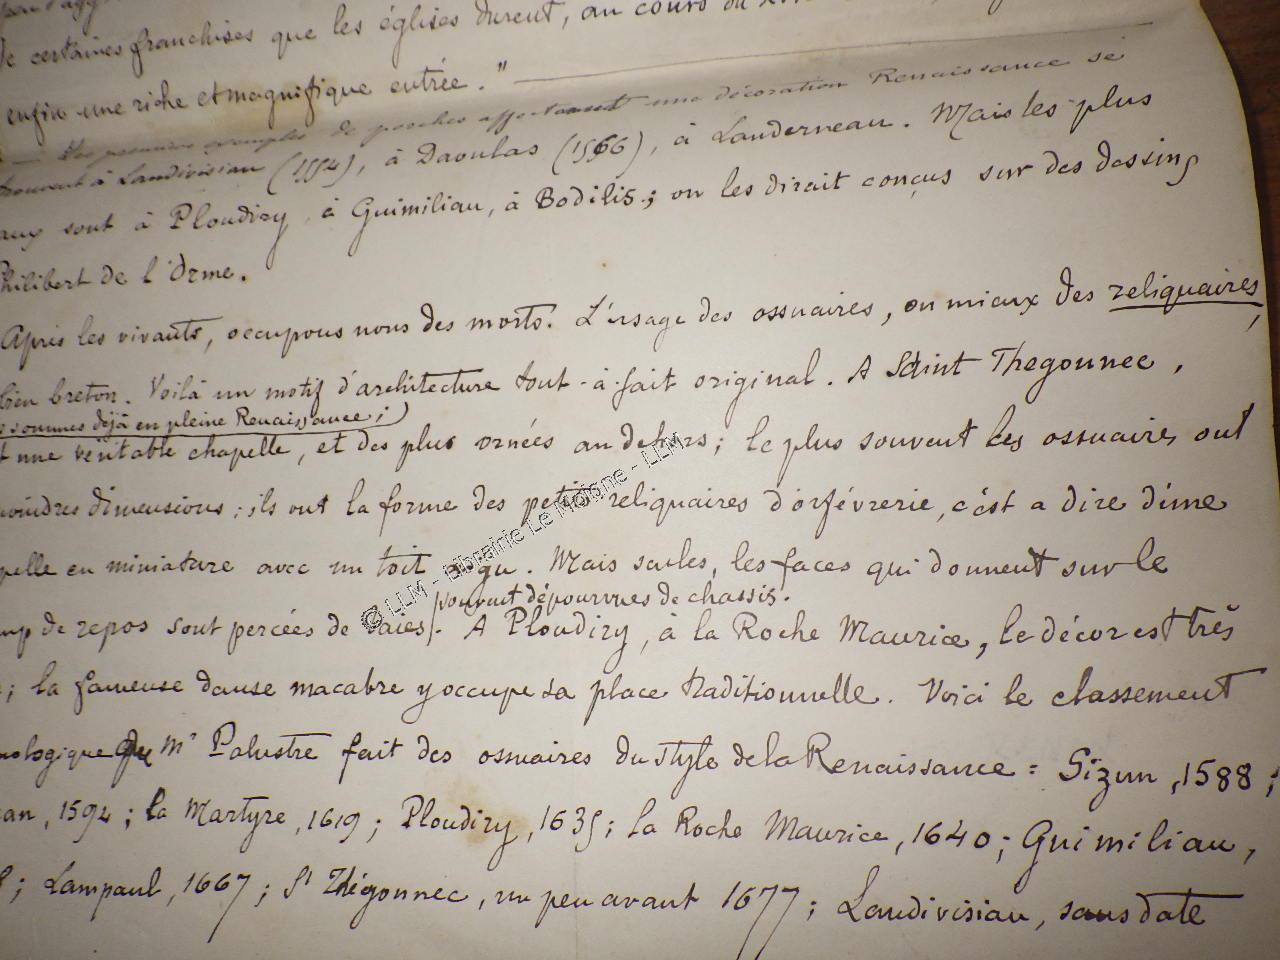 de certaines franchises que les églises durent, au cours du
enfin une riche et magnifique entrée."
Les premiers exemples de porches affectant une décoration Renaissance se
trouvent à Landivisiau (1554), à Daoulas (1566), à Landerneau. Mais les plus
sont à Ploudiry, à Guimiliau, à Bodilis; on les dirait conçus sur des dessins
Philibert de l'Orme.
Après les vivants, occupons nous des morts. L'usage des ossuaires, ou mieux des reliquaires,
bien breton. Voilà un motif d'architecture tout-à-fait original. A Saint Thegonnec,
sommes déjà en pleine Renaissance;)
une véritable chapelle, et des plus ornées au dehors; le plus souvent les ossuaires ont
moindres dimensions; ils ont la forme des petits reliquaires d'orfévrerie, c'est a dire d'une
pelle en miniature avec un toit aigu. Mais seules, les faces qui donnent sur le
pouvant dépourvues de chassis.
de repos sont percées de baies. A Ploudiry, à la Roche Maurice, le décor est très
; la fameuse danse macabre y occupe sa place traditionnelle. Voici le classement
nologique que Mr Palustre fait des ossuaires du style de la Renaissance = Sizun, 1588;
an, 1594; la Martyre, 1619; Ploudiry, 1635; la Roche Maurice, 1640; Guimiliau,
; Lampaul, 1667; St Thégonnec, un peu avant 1677; Landivisiau, sans date
© LLM - Librairie Le Moigne - LLM